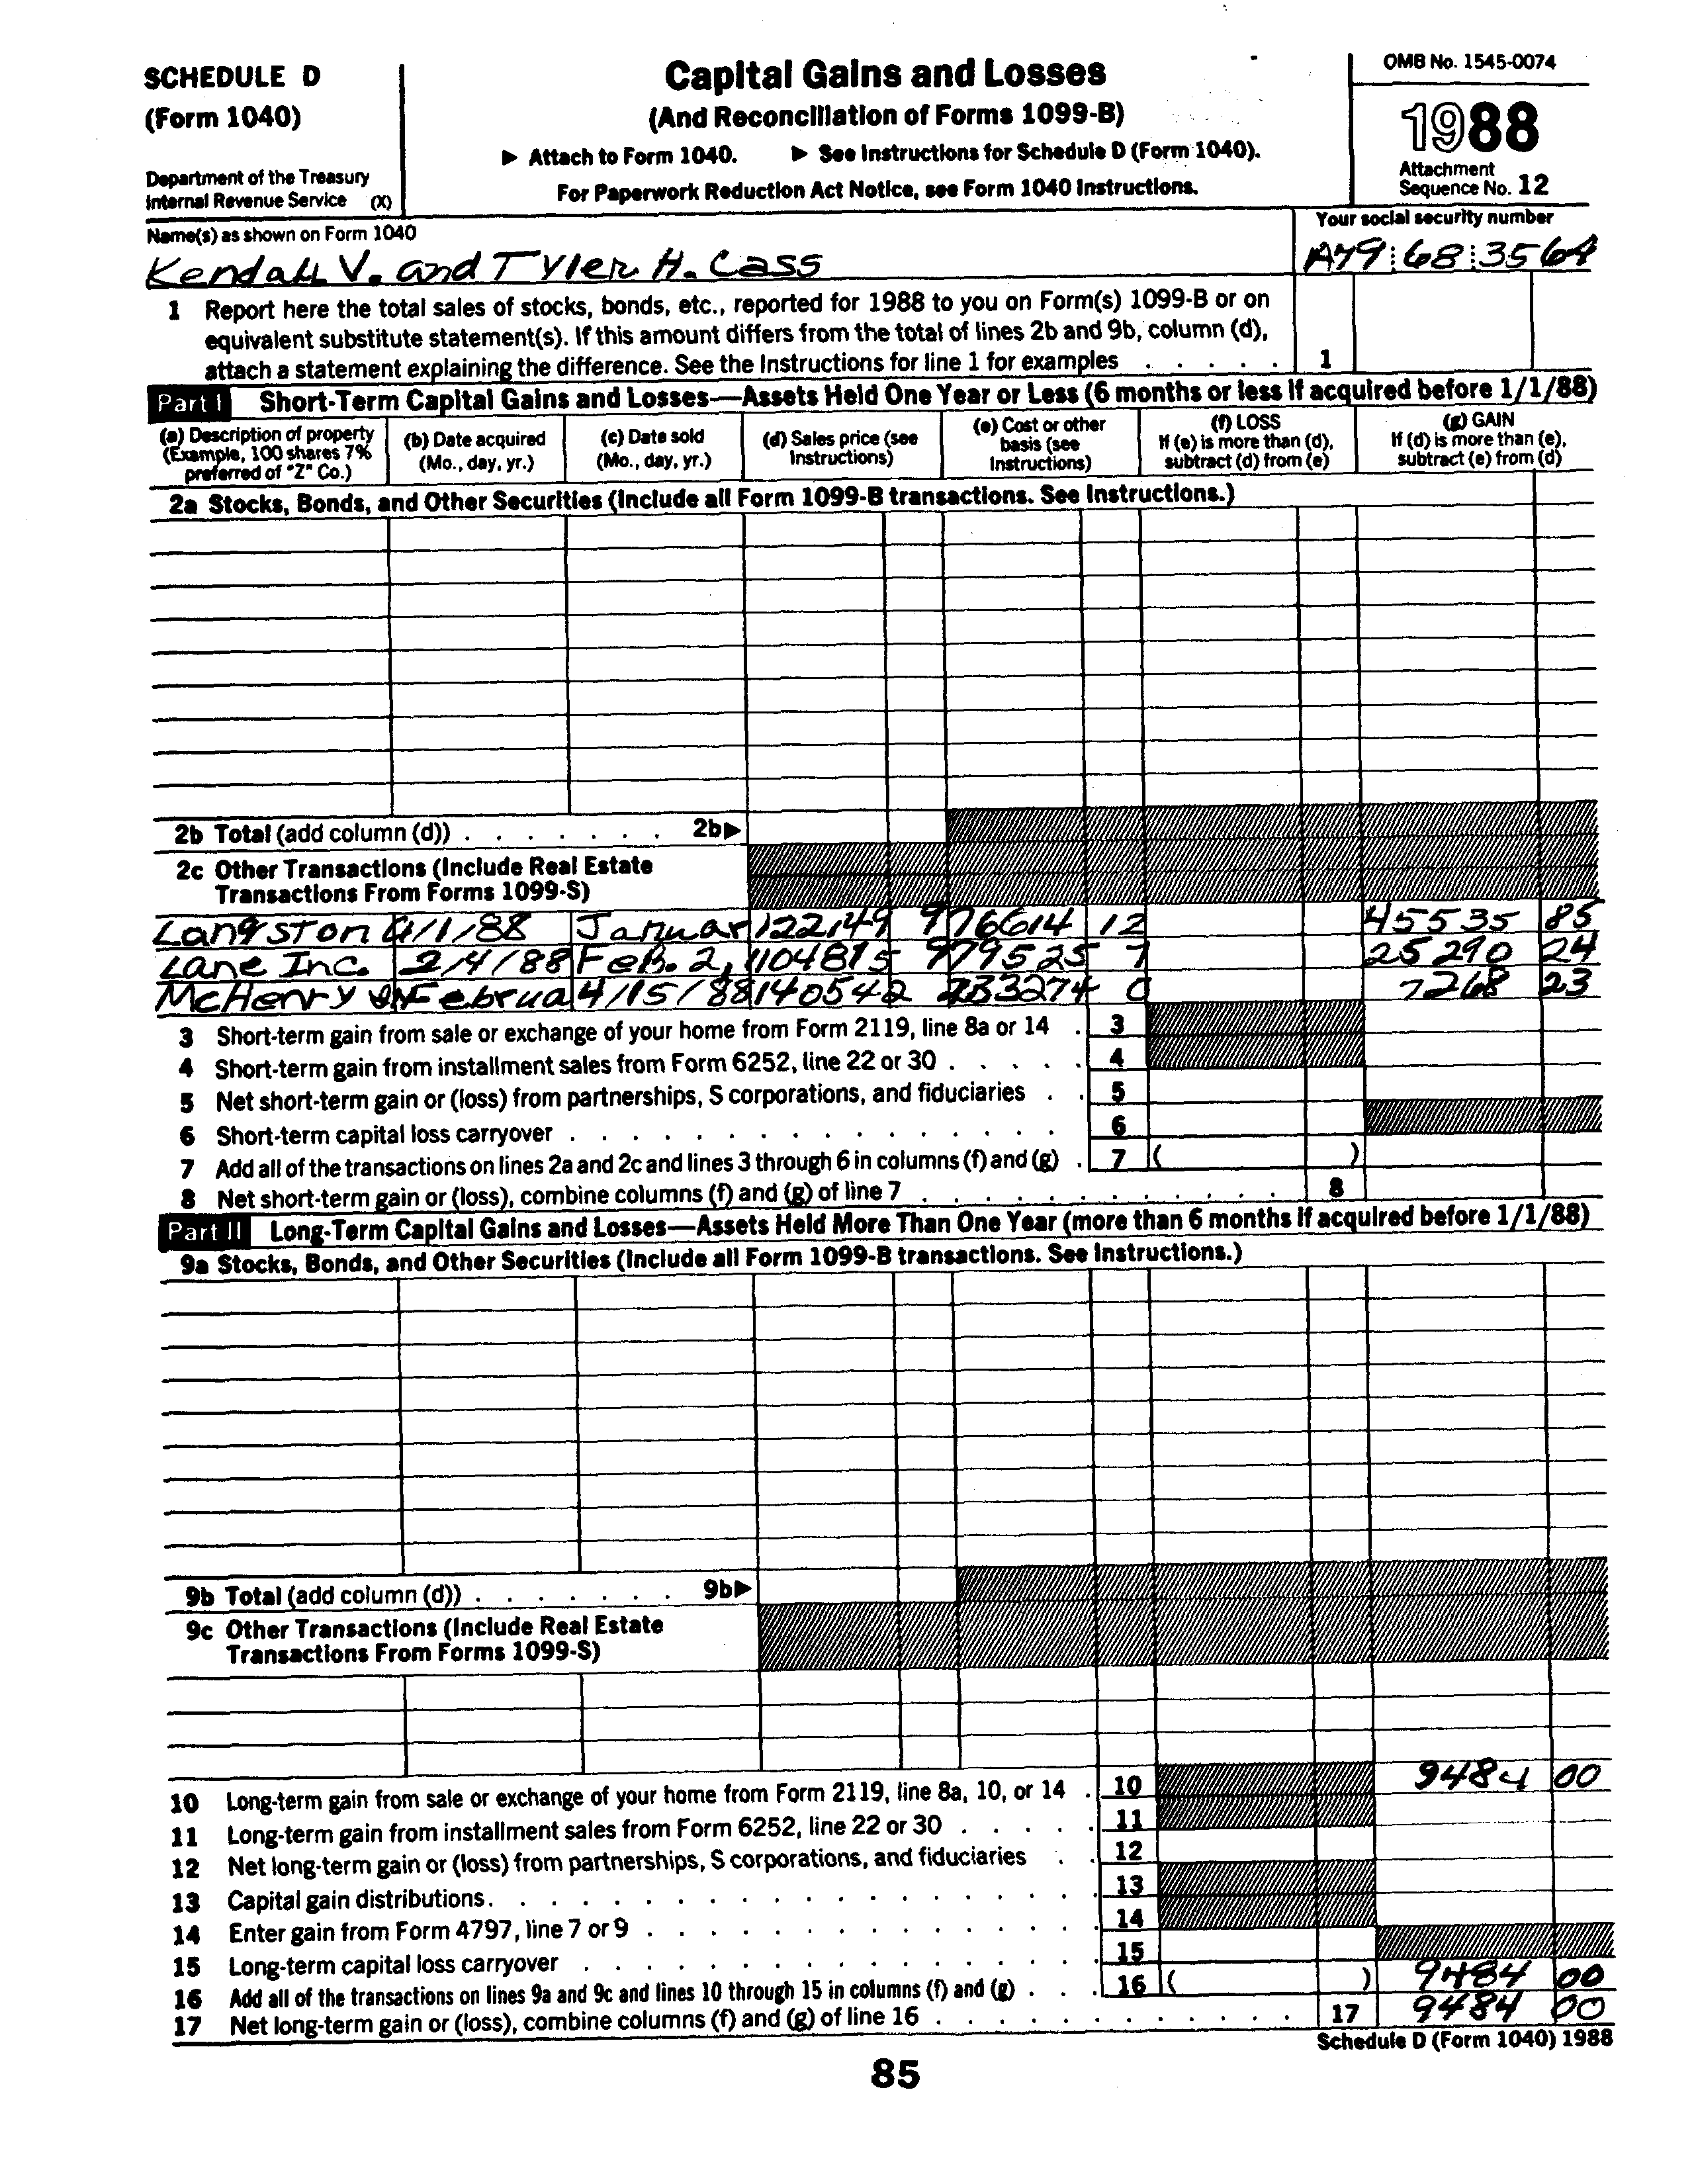 SCHEDULE D
(Form 1040)
Department of the Treasury
Internal Revenue Service (X)
Capital Gains and Losses
(And Reconciliation of Forms 1099-B)
▶ Attach to Form 1040. ▶ See Instructions for Schedule D (Form 1040).
For Paperwork Reduction Act Notice, see Form 1040 Instructions.
OMB No. 1545-0074
1988
Attachment
Sequence No. 12
Name(s) as shown on Form 1040
Kendall V. and Tyler H. Cass
Your social security number
A79 68 3564
1 Report here the total sales of stocks, bonds, etc., reported for 1988 to you on Form(s) 1099-B or on
equivalent substitute statement(s). If this amount differs from the total of lines 2b and 9b, column (d),
attach a statement explaining the difference. See the Instructions for line 1 for examples . . . . . 1
Part I Short-Term Capital Gains and Losses—Assets Held One Year or Less (6 months or less if acquired before 1/1/88)
(a) Description of property
(Example, 100 shares 7%
preferred of "Z" Co.)
(b) Date acquired
(Mo., day, yr.)
(c) Date sold
(Mo., day, yr.)
(d) Sales price (see
Instructions)
(e) Cost or other
basis (see
Instructions)
(f) LOSS
If (e) is more than (d),
subtract (d) from (e)
(g) GAIN
If (d) is more than (e),
subtract (e) from (d)
2a Stocks, Bonds, and Other Securities (Include all Form 1099-B transactions. See Instructions.)
2b Total (add column (d)) . . . . . . . 2b▶
2c Other Transactions (Include Real Estate
Transactions From Forms 1099-S)
Langston 4/1/88 Januar 122149 9 76614 12 45535 85
Lane Inc. 2/4/88 Feb. 2, 1104815 9 79525 7 25290 24
McHenry Februa 4/15/88 140542 2 33274 0 7268 23
3 Short-term gain from sale or exchange of your home from Form 2119, line 8a or 14 . 3
4 Short-term gain from installment sales from Form 6252, line 22 or 30 . . . . . 4
5 Net short-term gain or (loss) from partnerships, S corporations, and fiduciaries . . 5
6 Short-term capital loss carryover . . . . . . . . . . . . . . . . 6
7 Add all of the transactions on lines 2a and 2c and lines 3 through 6 in columns (f) and (g) . 7 ( )
8 Net short-term gain or (loss), combine columns (f) and (g) of line 7 . . . . . . . . . . . . 8
Part II Long-Term Capital Gains and Losses—Assets Held More Than One Year (more than 6 months if acquired before 1/1/88)
9a Stocks, Bonds, and Other Securities (Include all Form 1099-B transactions. See Instructions.)
9b Total (add column (d)) . . . . . . . 9b▶
9c Other Transactions (Include Real Estate
Transactions From Forms 1099-S)
10 Long-term gain from sale or exchange of your home from Form 2119, line 8a, 10, or 14 . 10 9484 00
11 Long-term gain from installment sales from Form 6252, line 22 or 30 . . . . . 11
12 Net long-term gain or (loss) from partnerships, S corporations, and fiduciaries . . 12
13 Capital gain distributions . . . . . . . . . . . . . . . . . . 13
14 Enter gain from Form 4797, line 7 or 9 . . . . . . . . . . . . . 14
15 Long-term capital loss carryover . . . . . . . . . . . . . . . . 15
16 Add all of the transactions on lines 9a and 9c and lines 10 through 15 in columns (f) and (g) . . . 16 ( ) 9484 00
17 Net long-term gain or (loss), combine columns (f) and (g) of line 16 . . . . . . . . . . . . 17 9484 00
Schedule D (Form 1040) 1988
85